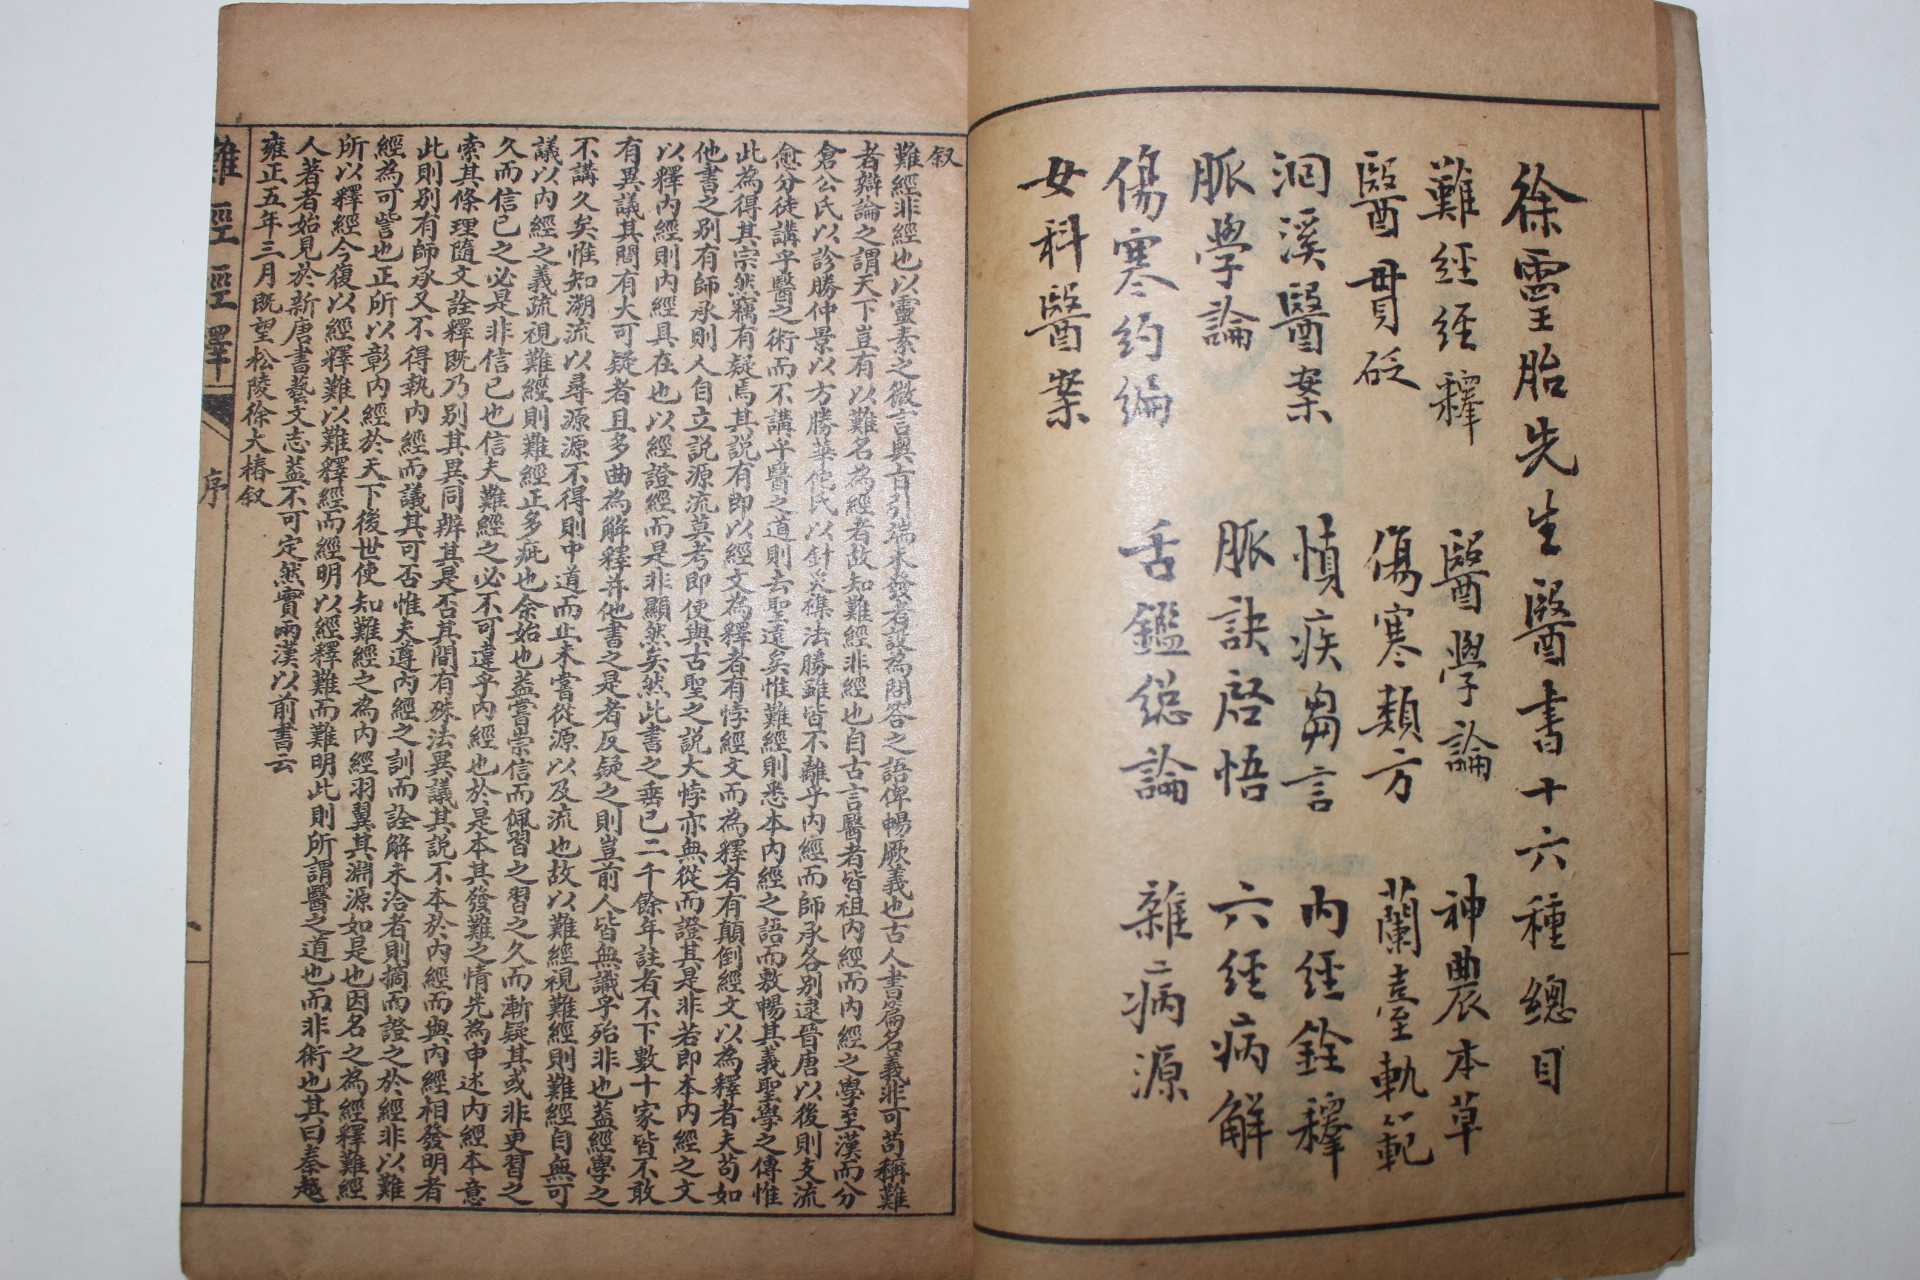 徐靈胎先生醫書十六種總目
難經經釋　醫學論　神農本草
醫貫砭　傷寒類方　蘭臺軌範
洄溪醫案　慎疾芻言　內經銓釋
脈學論　脈訣啓悟　六經病解
傷寒約編　舌鑑總論　雜病源
女科醫案
叙
難經非經也以靈素之微言奧旨引端未發者設為問答之語俾暢厥義也古人書篇名義非可苟稱難
者辯論之謂天下豈有以難名為經者故知難經非經也自古言醫者皆祖內經而內經之學至漢而分
倉公氏以診勝仲景以方勝華佗氏以針灸雜法勝雖皆不離乎內經而師承各別逮晉唐以後則支流
愈分徒講乎醫之術而不講乎醫之道則去聖遠矣惟難經則悉本內經之語而敷暢其義聖學之傳惟
此為得其宗然竊有疑焉其說有即以經文為釋者有悖經文而為釋者有顛倒經文以為釋者夫苟如
他書之別有師承則人自立說源流莫考即使與古聖之說大悖亦無從而證其是非若即本內經之文
以釋內經則內經具在也以經證經而是非顯然矣然此書之垂已二千餘年註者不下數十家皆不敢
有異議其間有大可疑者且多曲為解釋并他書之是者反疑之則豈前人皆無識乎殆非也蓋經學之
不講久矣惟知溯流以尋源源不得則中道而止未嘗從源以及流也故以難經視難經則難經自無可
議以內經之義疏視難經則難經正多疵也余始也蓋嘗崇信而佩習之習之久而漸疑其或非更習之
久而信已之必是非信已也信夫難經之必不可違乎內經也於是本其發難之情先為申述內經本意
索其條理隨文詮釋既乃別其異同辨其是否其間有殊法異議其說不本於內經而與內經相發明者
此則別有師承又不得執內經而議其可否惟夫遵內經之訓而詮解未洽者則摘而證之於經非以難
經為可訾也正所以彰內經於天下後世使知難經之為內經羽翼其淵源如是也因名之為經釋難經
所以釋經今復以經釋難以難釋經而經明以經釋難而難明此則所謂醫之道也而非術也其曰秦越
人著者始見於新唐書藝文志蓋不可定然實兩漢以前書云
雍正五年三月既望松陵徐大椿叙
難經經釋　序